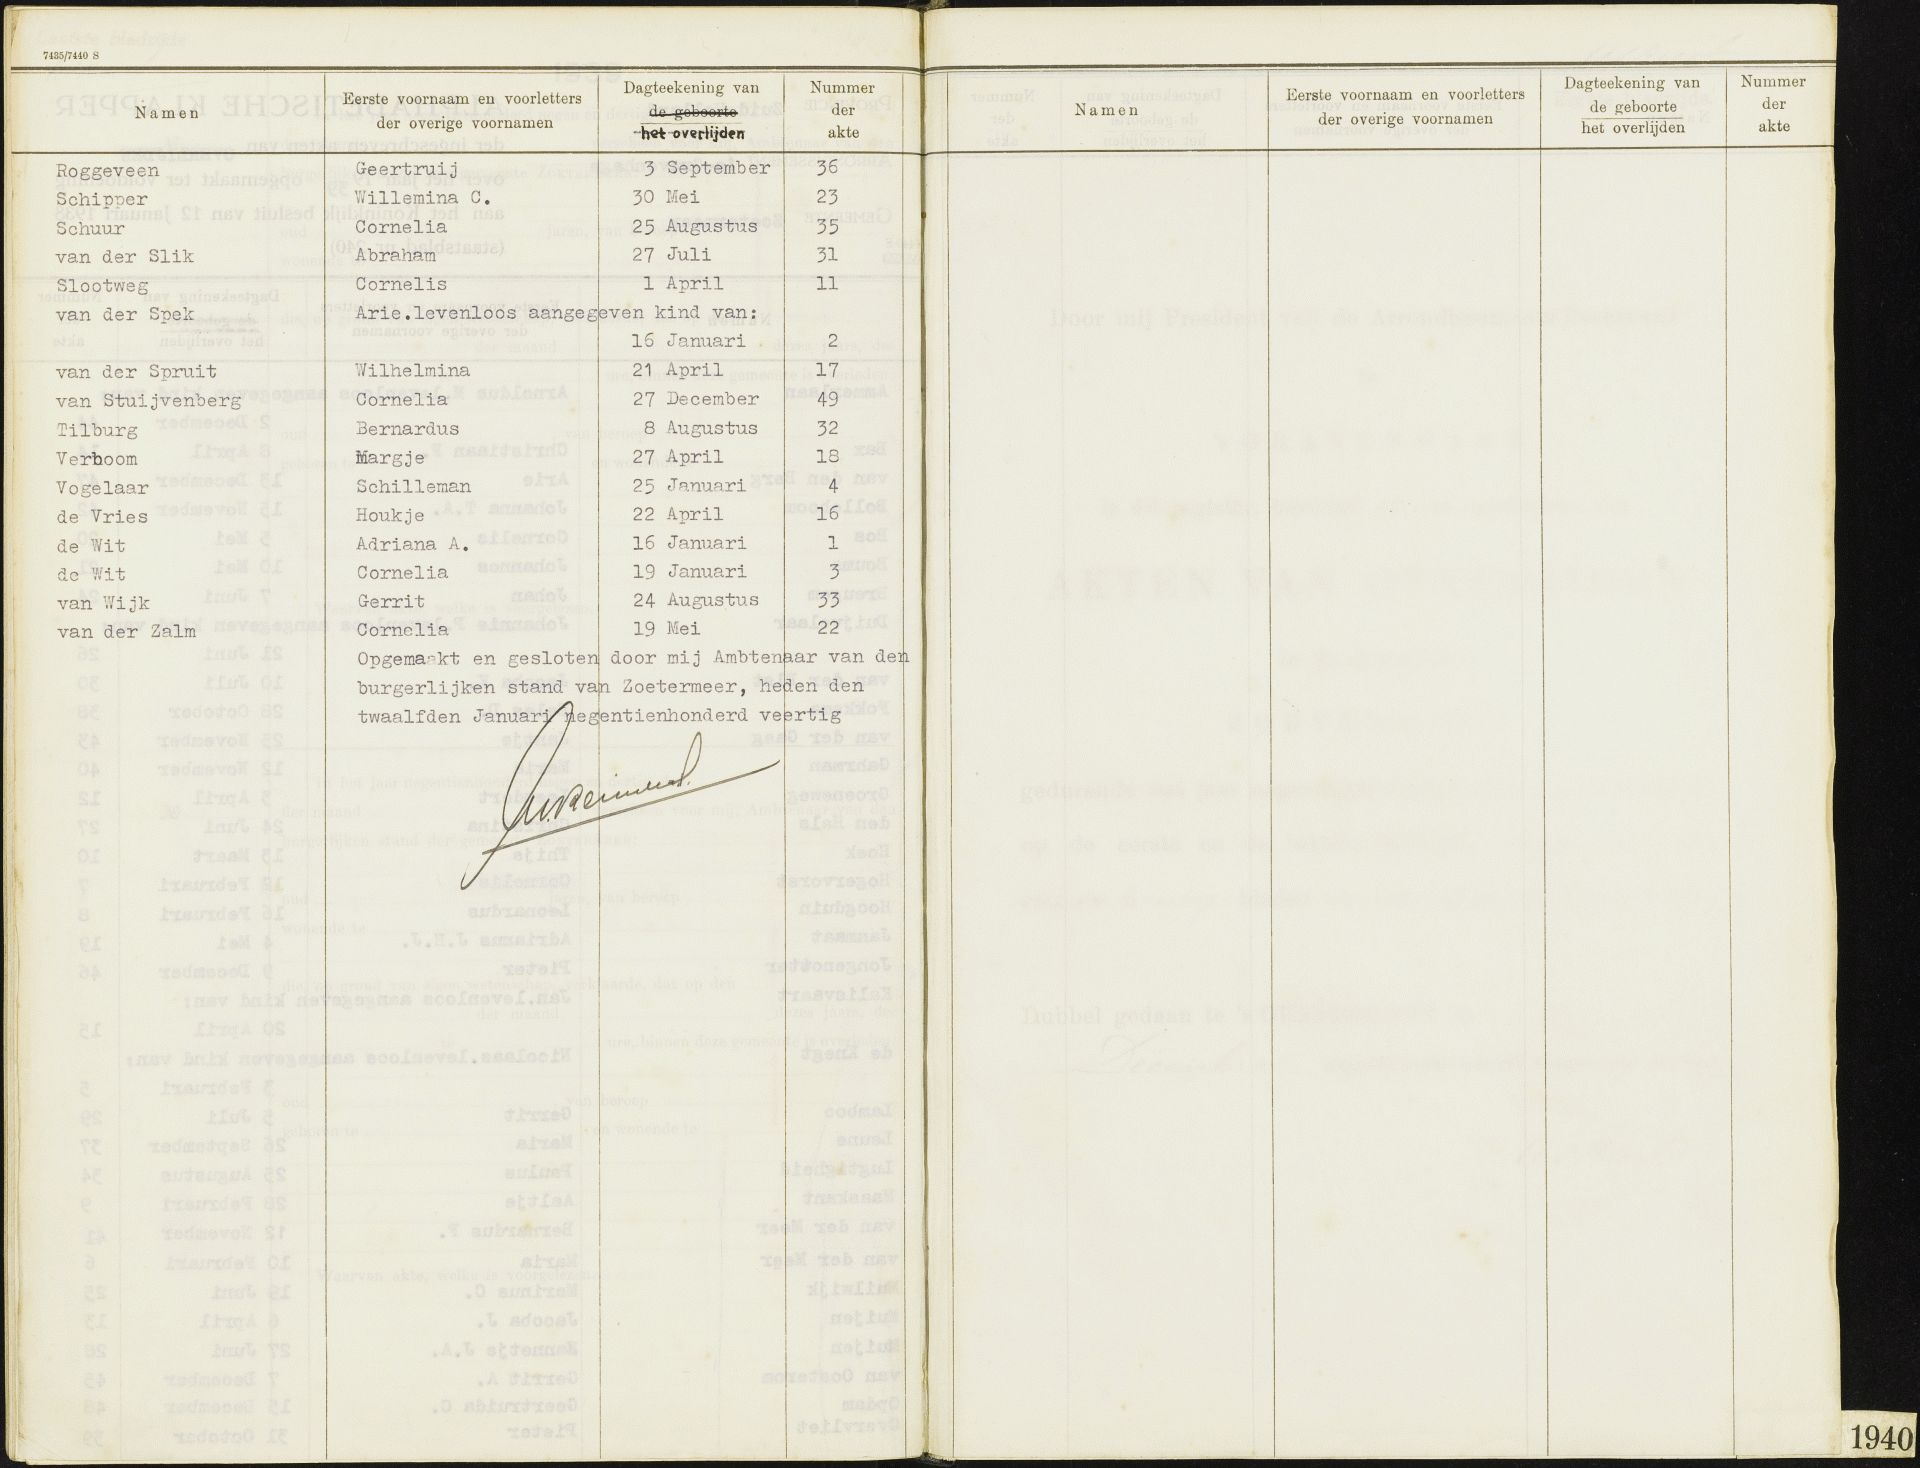 7435/7440 S
Namen Eerste voornaam en voorletters der overige voornamen Dagteekening van de geboorte het overlijden Nummer der akte
Roggeveen Geertruij 3 September 36
Schipper Willemina C. 30 Mei 23
Schuur Cornelia 25 Augustus 35
van der Slik Abraham 27 Juli 31
Slootweg Cornelis 1 April 11
van der Spek Arie.levenloos aangegeven kind van:
16 Januari 2
van der Spruit Wilhelmina 21 April 17
van Stuijvenberg Cornelia 27 December 49
Tilburg Bernardus 8 Augustus 32
Verboom Margje 27 April 18
Vogelaar Schilleman 25 Januari 4
de Vries Houkje 22 April 16
de Wit Adriana A. 16 Januari 1
de Wit Cornelia 19 Januari 3
van Wijk Gerrit 24 Augustus 33
van der Zalm Cornelia 19 Mei 22
Opgemaakt en gesloten door mij Ambtenaar van den
burgerlijken stand van Zoetermeer, heden den
twaalfden Januari negentienhonderd veertig
Namen Eerste voornaam en voorletters der overige voornamen Dagteekening van de geboorte het overlijden Nummer der akte
1940